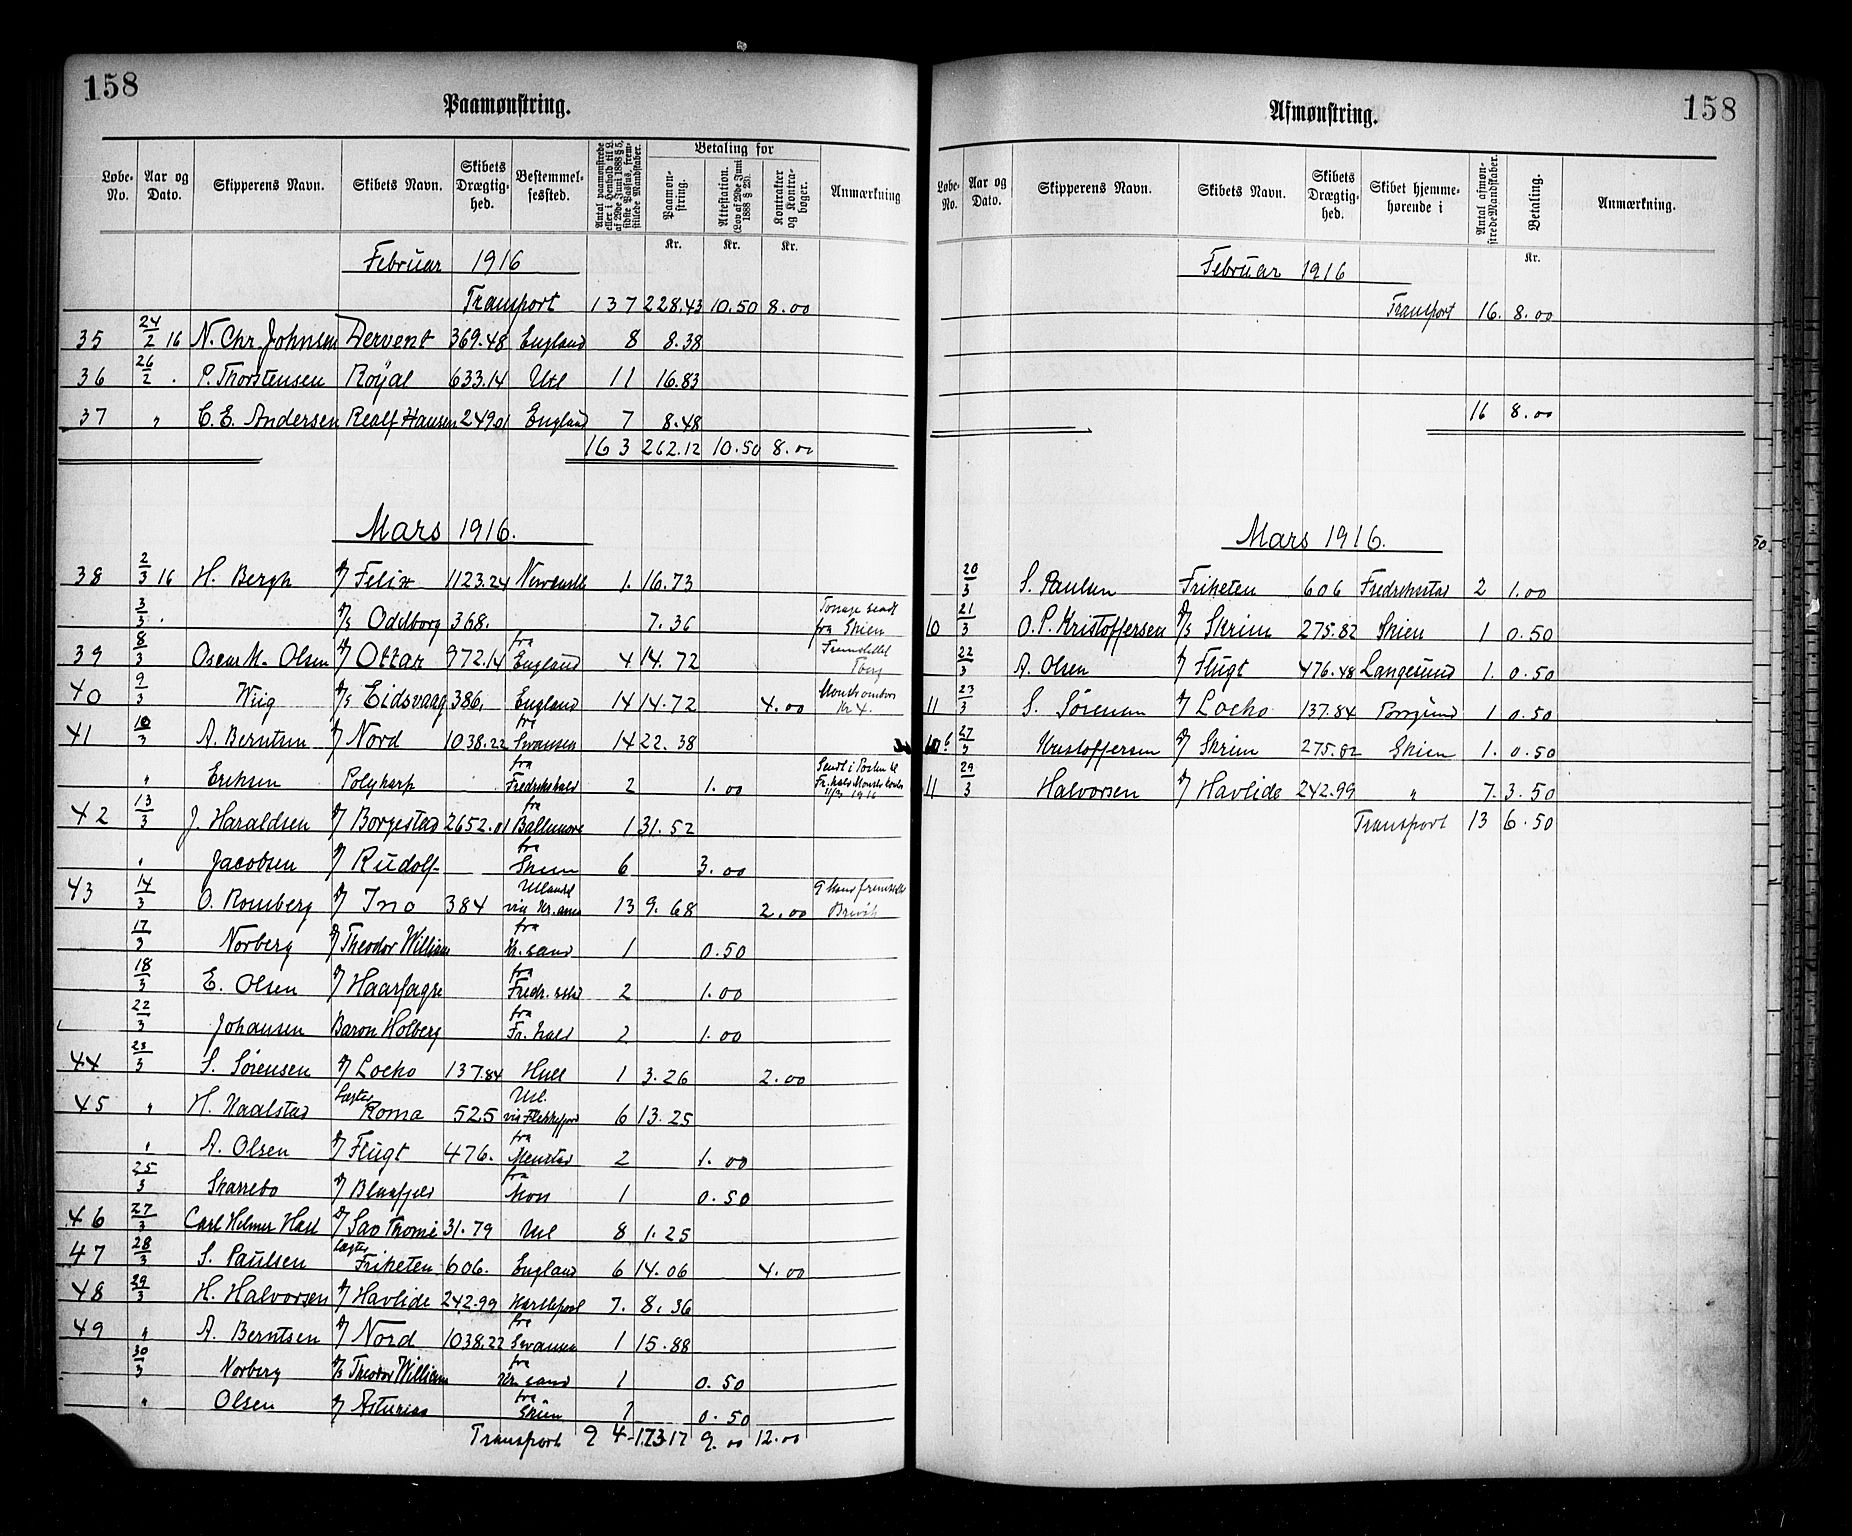 158
Paamønstring.
Løbe-No. Aar og Dato. Skipperens Navn. Skibets Navn. Skibets Drægtighed. Bestemmelsessted. Antal paamønstrede eller i Henhold til L. af 29de Juni 1888 § 5, sidste Passus, fremstillede Mandskaber. Betaling for Paamønstring. Attestation. (Lov af 29de Juni 1888 § 23). Kontrakter og Kontrabøger. Anmærkning
Kr. Kr. Kr.
Februar 1916
Transport 137 228.43 10.50 8.00
35 24/2 16 N. Chr. Johnsen Dervent 369.48 England 8 8.38
36 26/2 . P. Thorstensen Röyal 633.14 Utl 11 16.83
37 " C. E. Andersen Realf Hansen 249.01 England 7 8.48
163 262.12 10.50 8.00
Mars 1916.
38 2/3 16 H. Bergh D/ Felix 1123.24 Newcastle 1. 16.73
3/3 . D/s Odelborg 368. 7.36 Tonage sendt fra Skien
39 8/3 Oscar M. Olsen D/ Ottar 972.14 fra England 4 14.72 Fremstillet
40 9/3 Wiig D/s Eidsvaag 386. England 14 14.72 4.00
41 10/3 A. Berntsen D/ Nord 1038.22 fra Swansea 14 22.38
" Eriksen Polykarp fra Fredrikshald 2 1.00 Sendt i Posten til Fr.hald 11/3 1916
42 13/3 J. Haraldsen D/ Borgestad 2652.01 fra Baltimore 1 31.52
" Jacobsen D/ Rudolf fra Skien 6 3.00
43 14/3 O. Romberg D/ Ino 384 Utlandet via Kr.sand 13 9.68 2.00 9 Mand fremstillet Brevik
17/3 Norberg D/ Theodor William fra Kr.sand 1 0.50
18/3 E. Olsen D/ Haarfagre fra Fredr.stad 2 1.00
22/3 Johansen Baron Holberg fra Fr.hald 2 1.00
44 23/3 S. Sørensen D/ Locko 137.84 Hull 1 3.26 2.00
45 " H. Naalstad Lægter Roma 525 Utl. via Flekkefjord 6 13.25
" A. Olsen D/ Flugt 476. fra Menstad 2 1.00
25/3 Skarrebo D/ Blaafjeld fra Moss 1 0.50
46 27/3 Carl Hilmer Hall D/ Sao Thomé 31.79 Utl 8 1.25
47 28/3 S. Paulsen Lægter Friheten 606. England 6 14.06 4.00
48 29/3 H. Halvorsen D/ Havlide 242.99 Hartlepool 7. 8.36
49 " A. Berntsen D/ Nord 1038.22 fra Swansea 1 15.88
30/3 Norberg D/s Theodor William fra Kr.sand 1 0.50
" Olsen D/ Asturias fra Skien 1 0.50
Transport 94 173.17 9.00 12.00
Afmønstring.
158
Løbe-No. Aar og Dato. Skipperens Navn. Skibets Navn. Skibets Drægtighed. Skibet hjemmehørende i Antal afmønstrede Mandskaber. Betaling. Anmærkning.
Kr.
Februar 1916
Transport 16. 8.00
16 8.00
Mars 1916.
20/3 S. Paulsen Friheten 606 Fredriksstad 2 1.00
10 21/3 O. P. Kristoffersen D/s Skrim 275.82 Skien 1 0.50
22/3 A. Olsen D/ Flugt 476.48 Langesund 1. 0.50
11 23/3 S. Sørensen D/ Locko 137.84 Porsgrund 1 0.50
27/3 Kristoffersen D/ Skrim 275.82 Skien 1. 0.50
11 29/3 Halvorsen D/ Havlide 242.99 " 7. 3.50
Transport 13 6.50